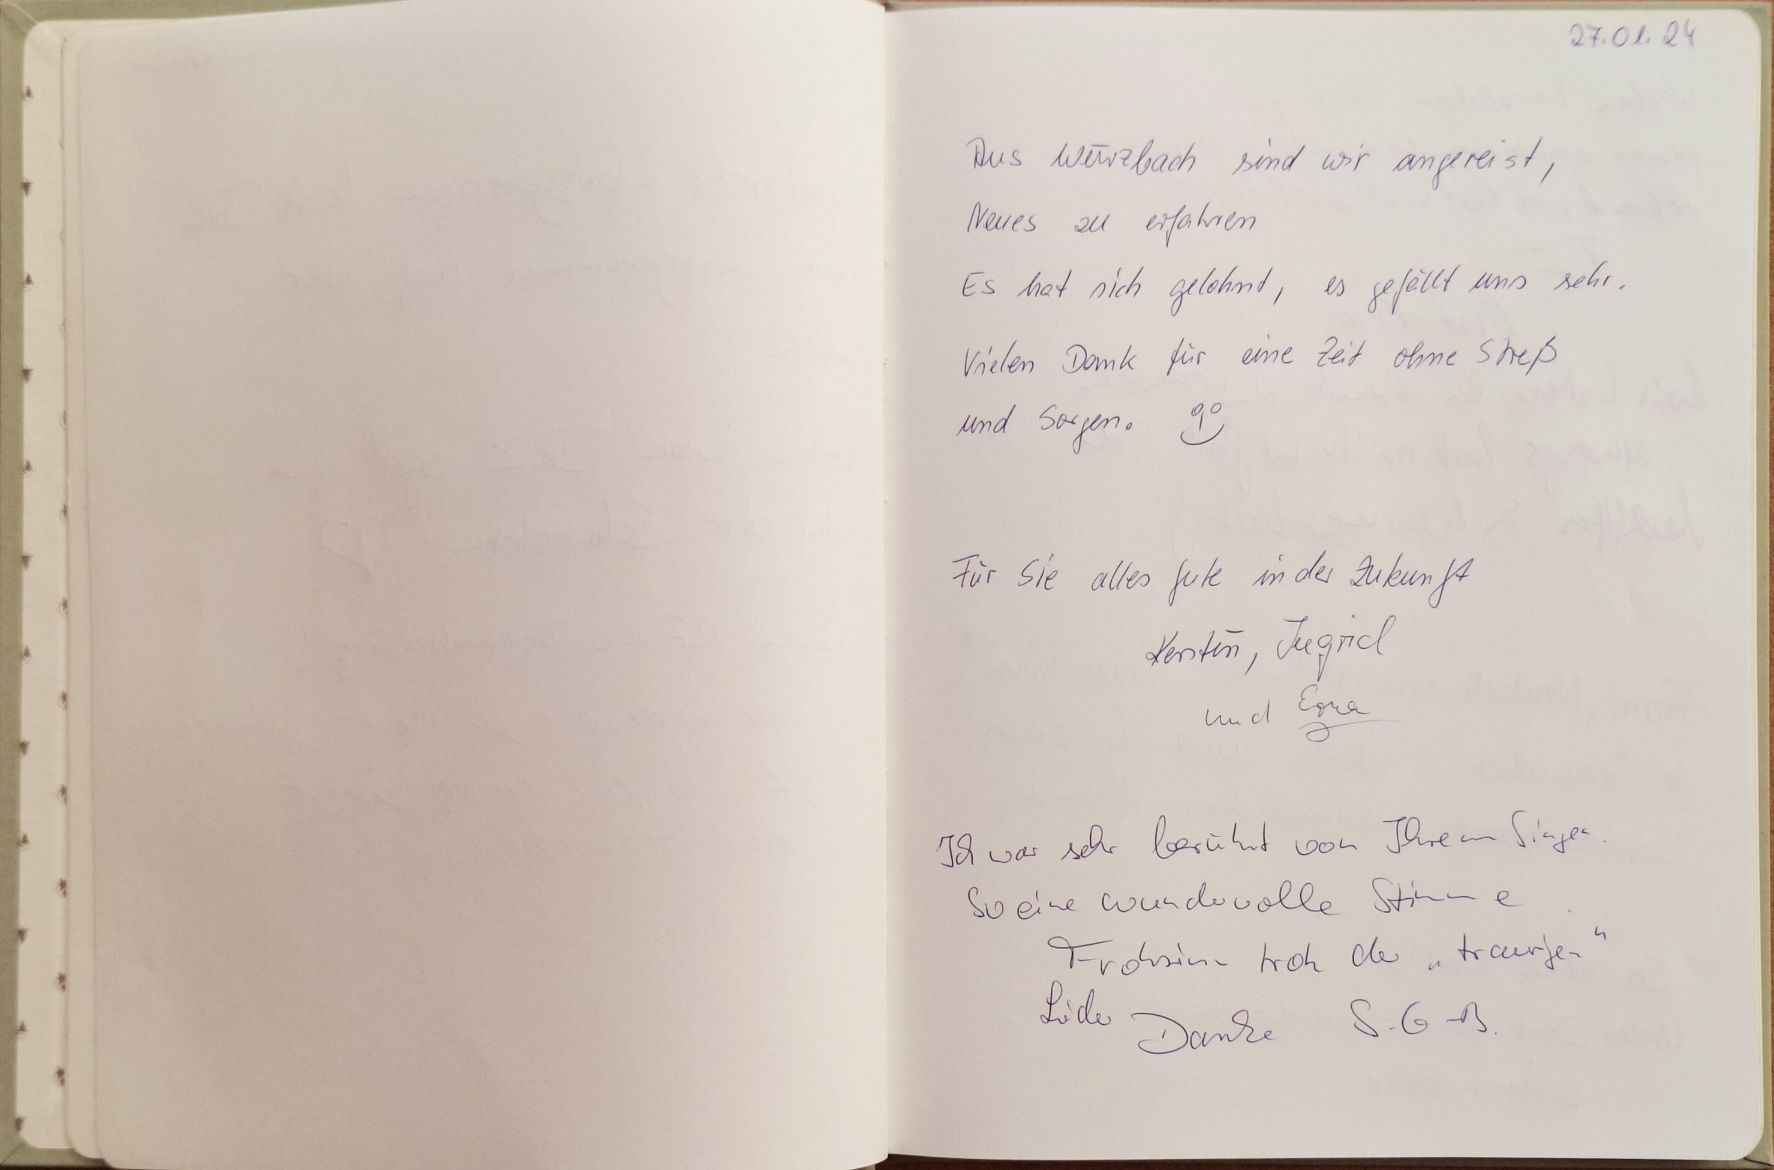 27.01.24
Aus Wurzbach sind wir angereist,
Neues zu erfahren
Es hat sich gelohnt, es gefällt uns sehr.
Vielen Dank für eine Zeit ohne Streß
und Sorgen.
Für Sie alles gute in der Zukunft
Kerstin, Ingrid
und
Ich war sehr berührt von Ihrem Singen.
So eine wundervolle Stimme
Frohsinn trotz der „traurigen“
Lieder Danke S.G-B.